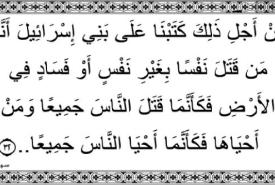 مِنْ أَجْلِ ذَلِكَ كَتَبْنَا عَلَى بَنِي إِسْرَائِيلَ أَنَّهُ
مَن قَتَلَ نَفْسًا بِغَيْرِ نَفْسٍ أَوْ فَسَادٍ فِي
الأَرْضِ فَكَأَنَّمَا قَتَلَ النَّاسَ جَمِيعًا وَمَنْ
أَحْيَاهَا فَكَأَنَّمَا أَحْيَا النَّاسَ جَمِيعًا.. ٣٢